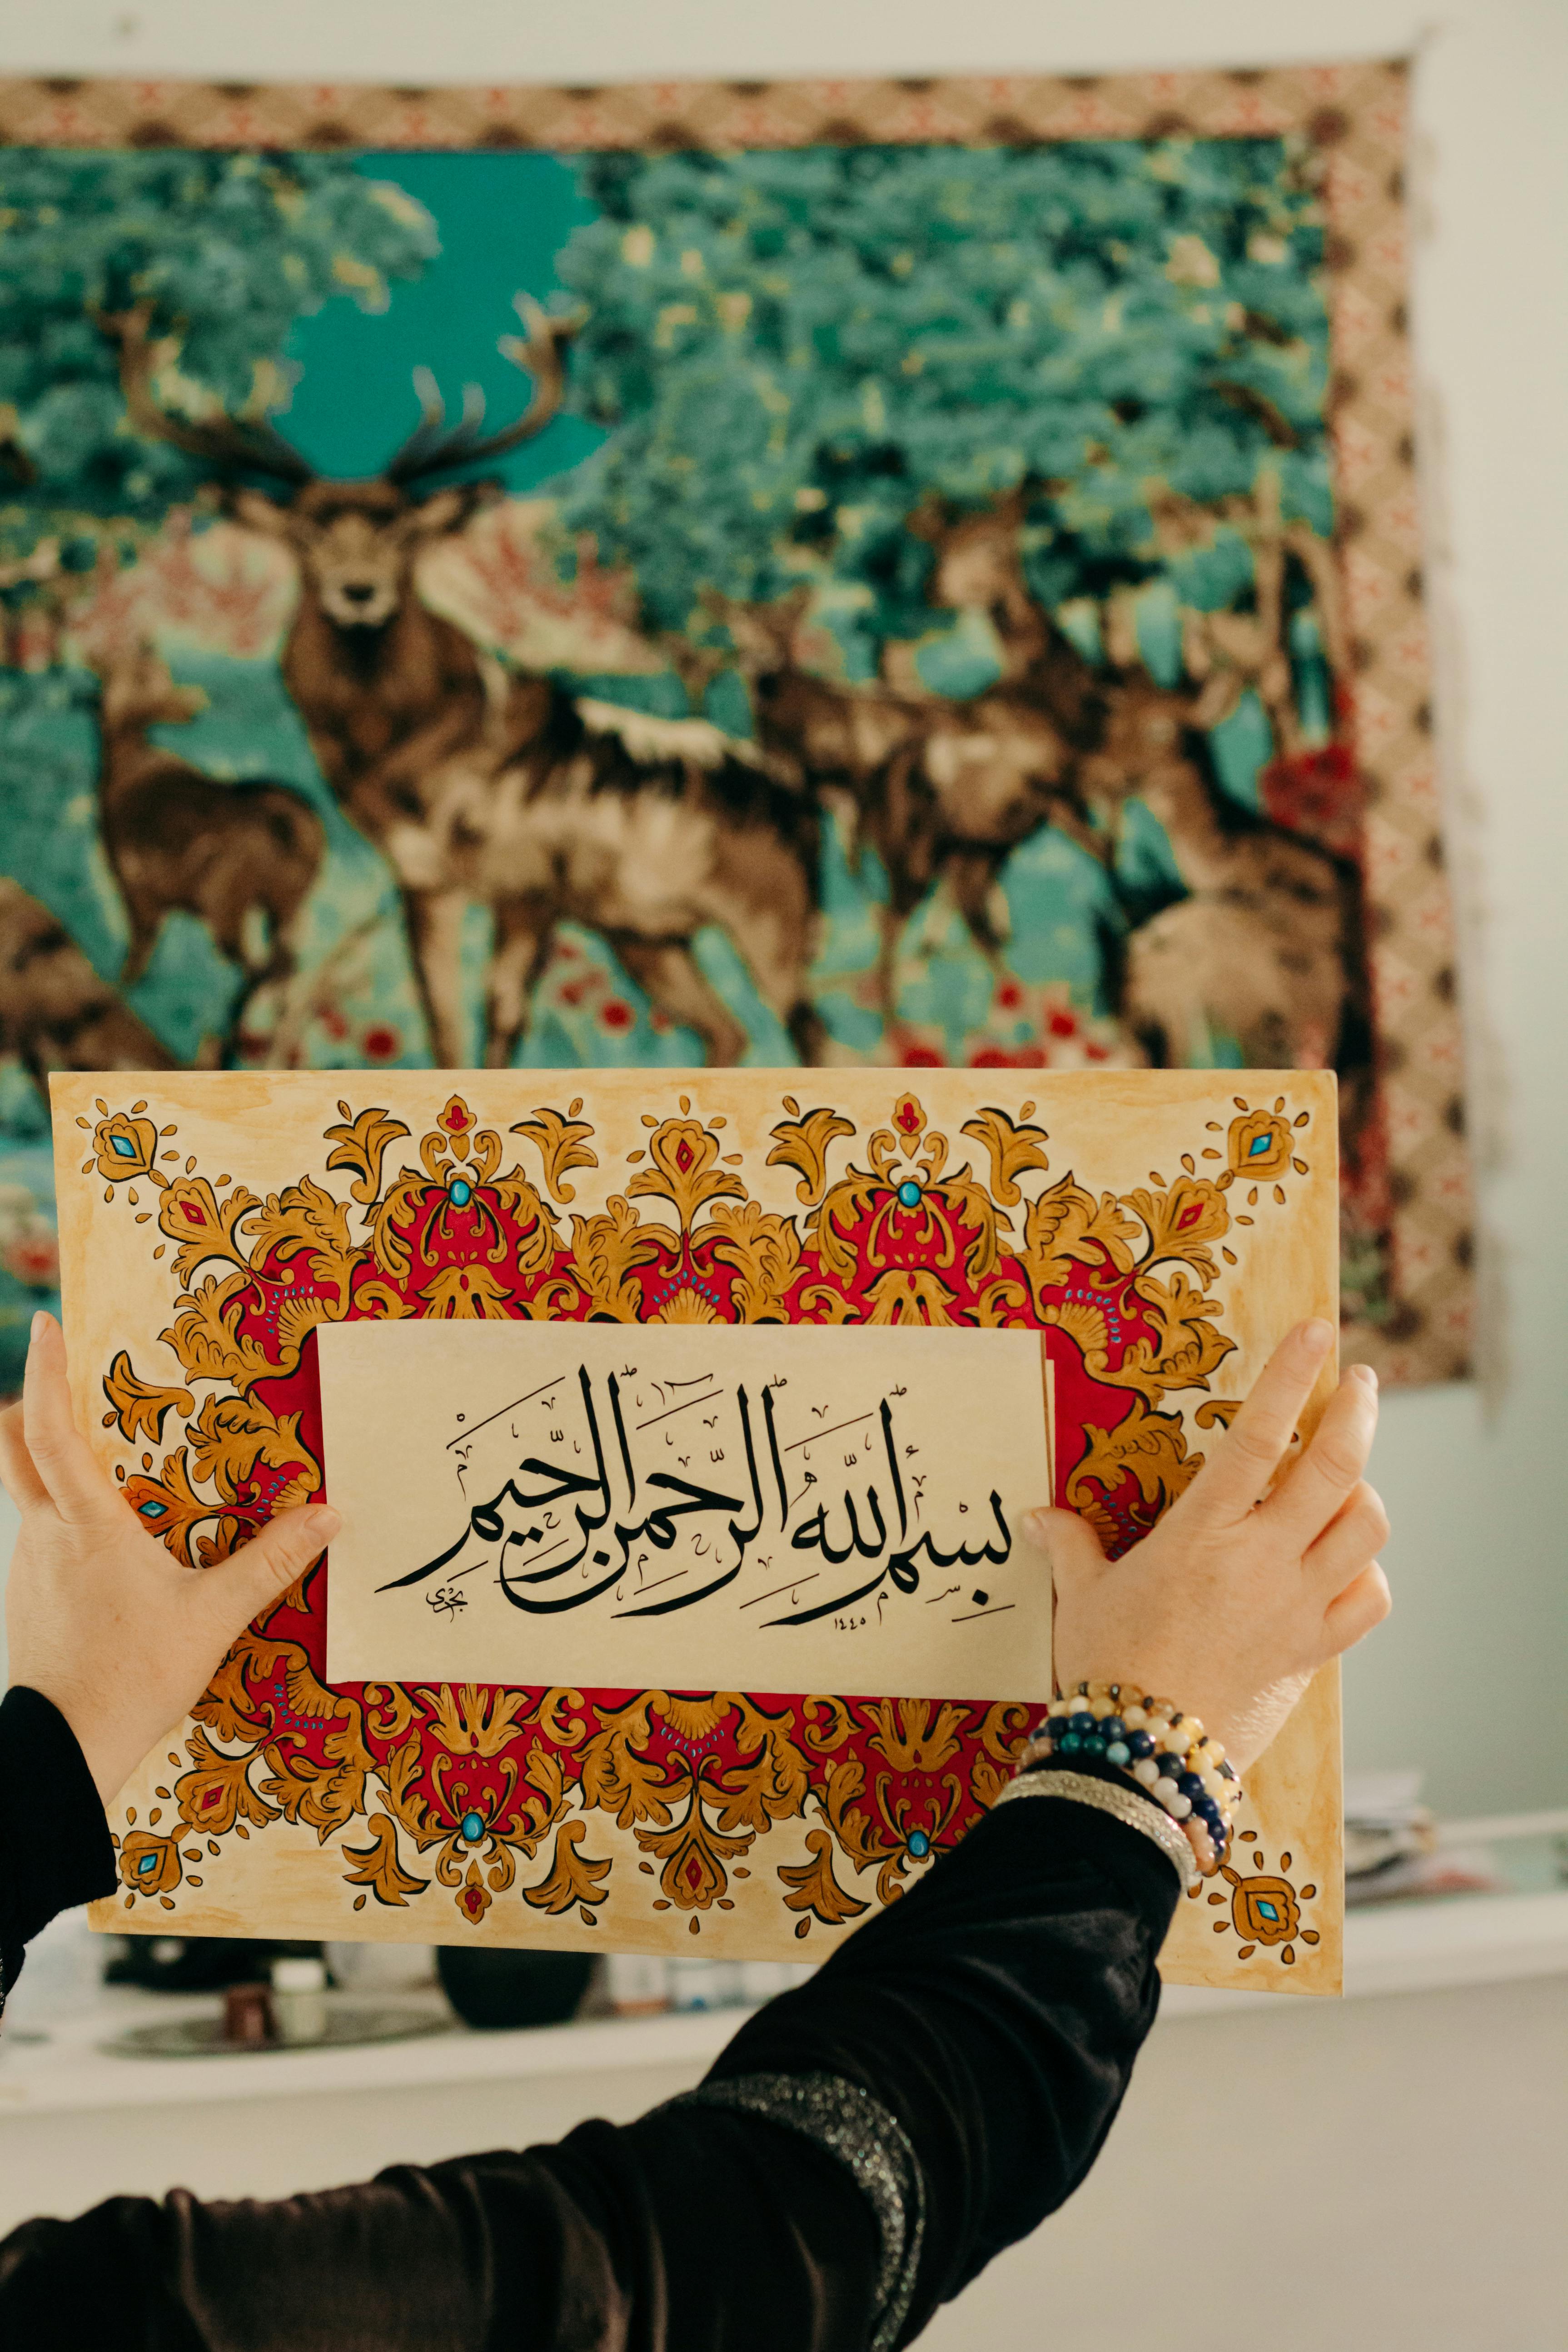 بِسْمِ اللَّهِ الرَّحْمَنِ الرَّحِيمِ
١٤٤٥